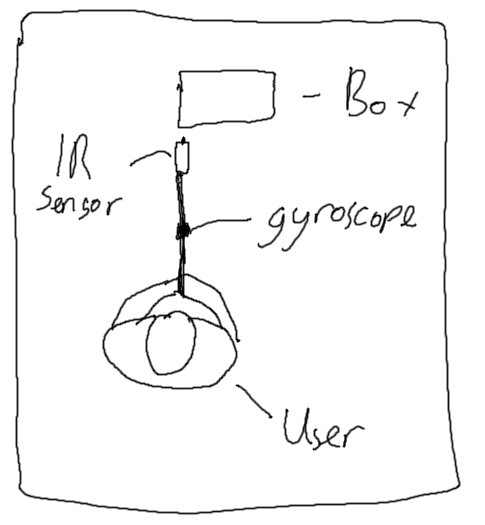 Box
IR
Sensor
gyroscope
User